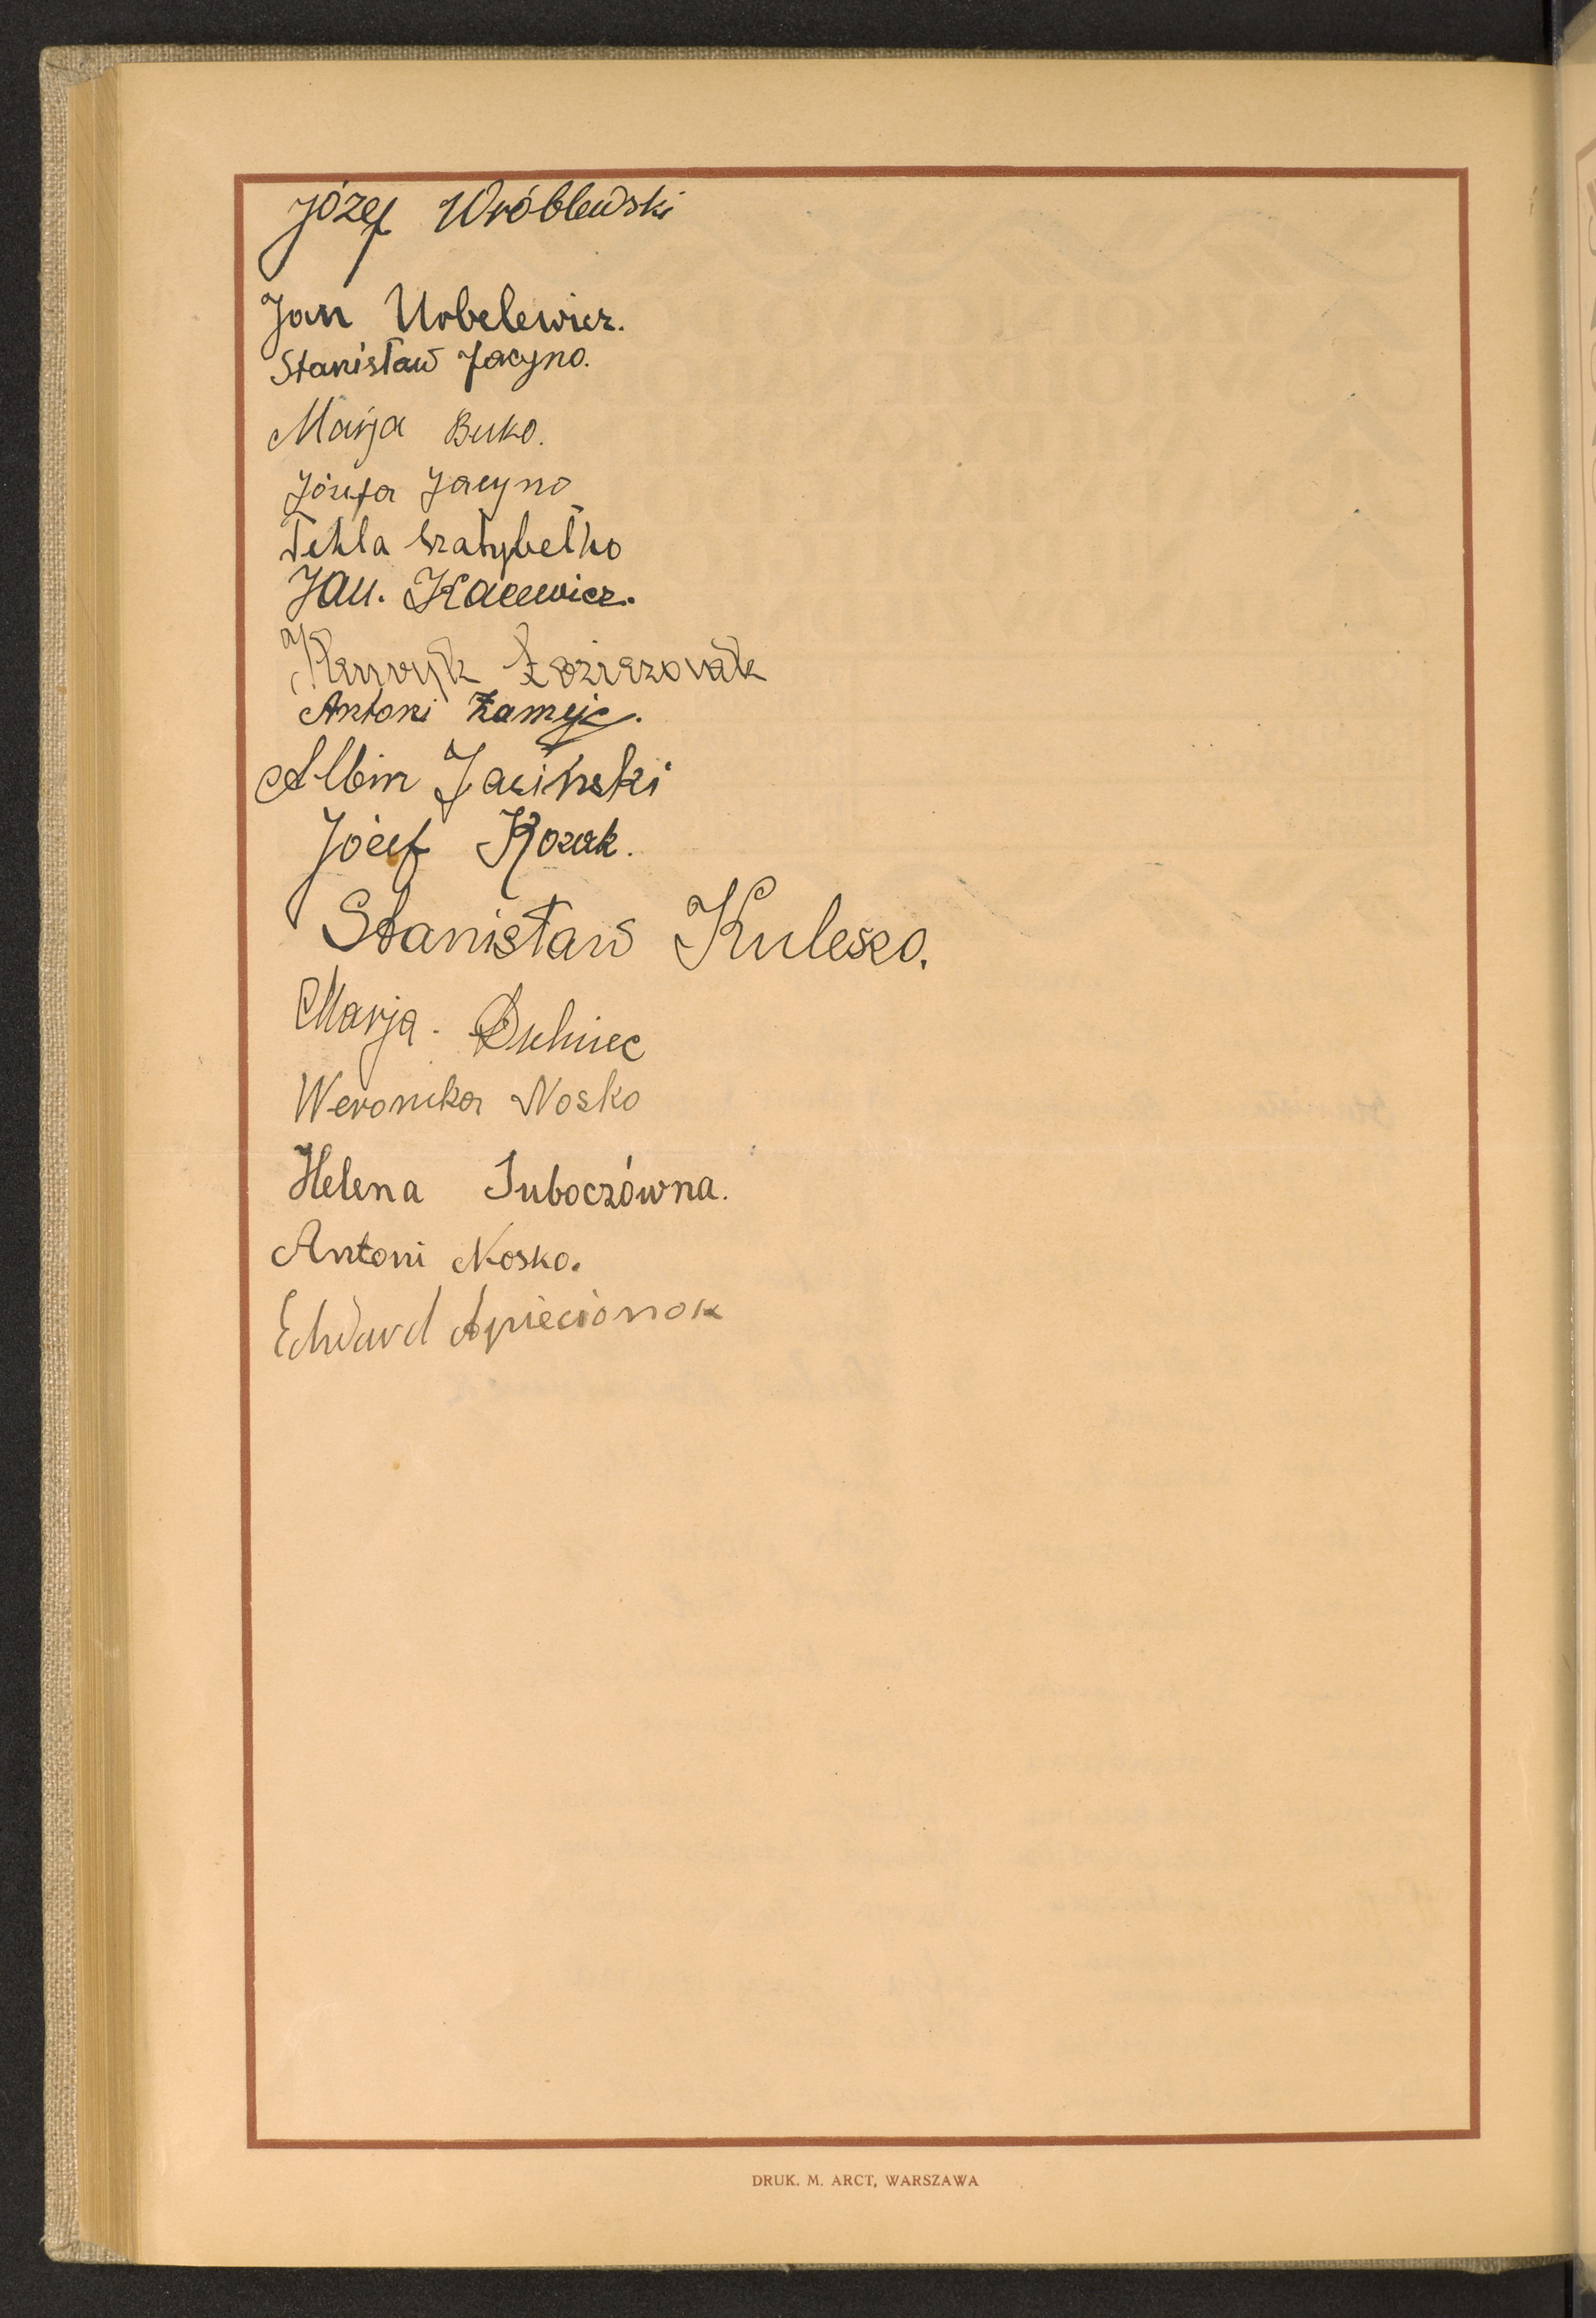 Józef Wróblewski
Jan Urbelewicz.
Stanisław Jacyno.
Marja Buko.
Józefa Jacyno
Tekla
Jan. Kacewicz.
Henryk
Antoni Zamejć.
Albin Jaciński
Józef Kozak.
Stanisław Kuleszo.
Marja. Duhniec
Weronika Nosko
Helena Juboczówna.
Antoni Nosko.
Edward Apiecionok
DRUK. M. ARCT, WARSZAWA